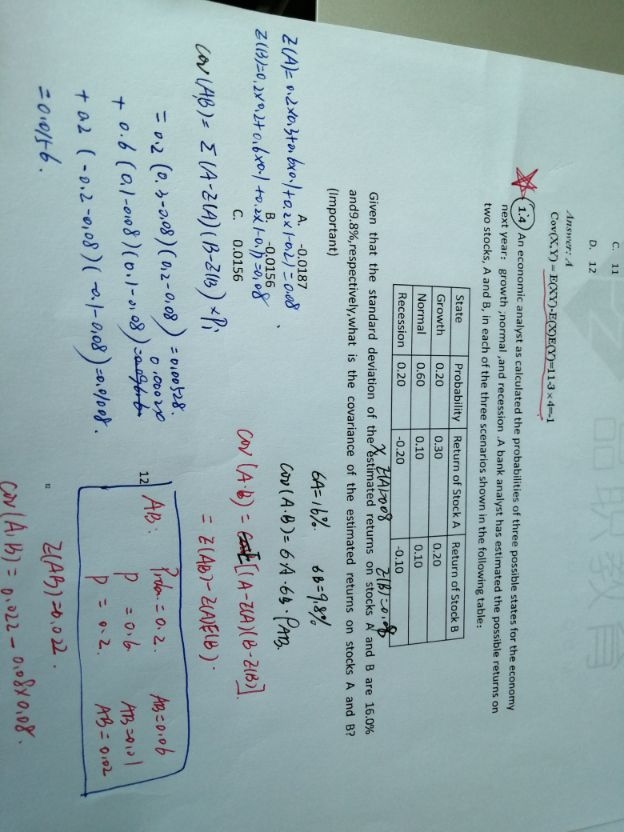 C. 11
D. 12
Answer: A
Cov(X,Y) = E(XY)-E(X)E(Y)=11-3×4=-1
1.4 An economic analyst as calculated the probabilities of three possible states for the economy
next year: growth ,normal ,and recession .A bank analyst has estimated the possible returns on
two stocks, A and B, in each of the three scenarios shown in the following table:
State Probability Return of Stock A Return of Stock B
Growth 0.20 0.30 0.20
Normal 0.60 0.10 0.10
Recession 0.20 -0.20 -0.10
E(A)=0.08 E(B)=0.08
Given that the standard deviation of the estimated returns on stocks A and B are 16.0%
and9.8%,respectively,what is the covariance of the estimated returns on stocks A and B?
(Important)
A. -0.0187
B. -0.0156
C. 0.0156
σA=16% σB=9.8%
Cov(A.B)=σA.σB.PAB.
E(A)=0.2×0.3+0.6×0.1+0.2×(-0.2)=0.08.
E(B)=0.2×0.2+0.6×0.1+0.2×(-0.1)=0.08
Cov(AB)=Σ(A-E(A)(B-E(B)×Pi
=0.2(0.3-0.08)(0.2-0.08)=0.00528.
+0.6(0.1-0.08)(0.1-0.08)
+0.2(-0.2-0.08)(-0.1-0.08)=0.01008.
=0.0156.
Cov(A.B)=[(A-E(A)(B-E(B)]
=E(AB)-E(A)E(B).
12
AB: Prob=0.2. AB=0.06
P=0.6 AB=0.01
P=0.2. AB=0.02
E(AB)=0.022.
Cov(A,B)=0.022-0.08×0.08.
品职教育